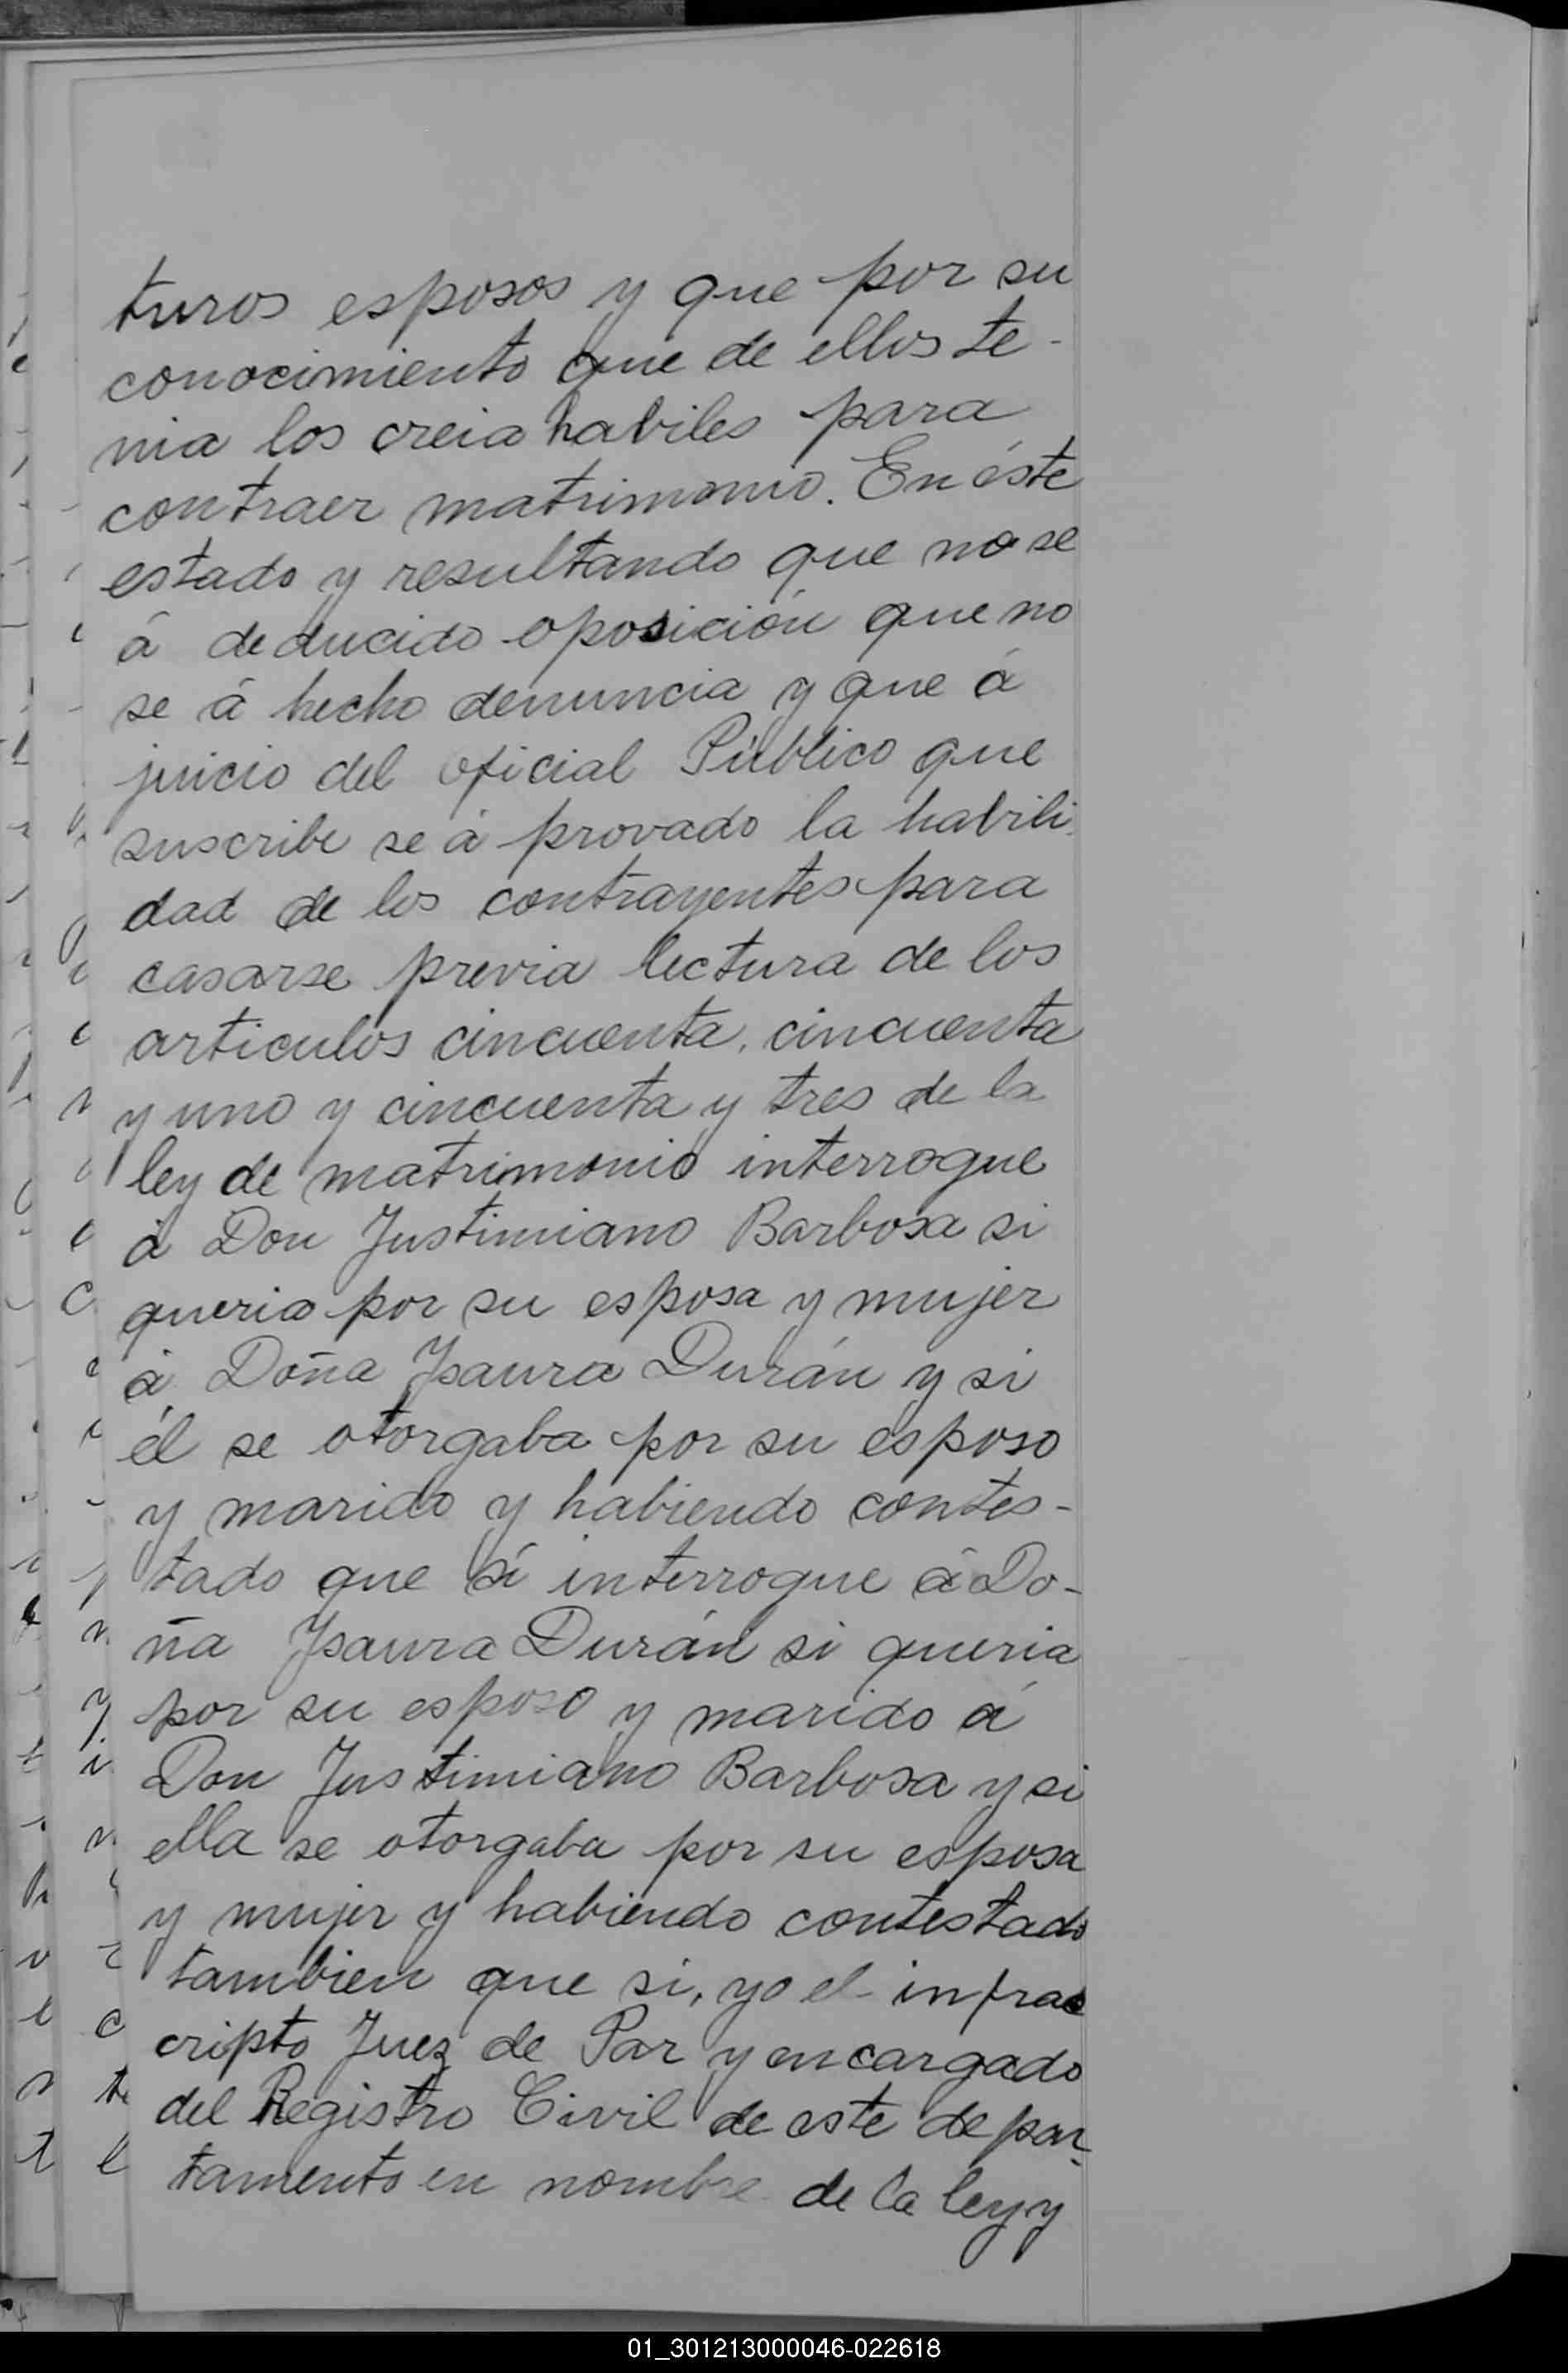 turos esposos y que por su
conocimiento que de ellos te-
nia los creia habiles para
contraer matrimonio. En éste
estado y resultando que no se
á deducido oposición que no
se á hecho denuncia y que á
juicio del oficial Público que
suscribe se á provado la habili
dad de los contrayentes para
casarse previa lectura de los
articulos cincuenta, cincuenta
y uno y cincuenta y tres de la
ley de matrimonio interrogue
á Don Justiniano Barbosa si
queria por su esposa y mujer
á Doña Ysaura Durán y si
él se otorgaba por su esposo
y marido y habiendo contes-
tado que sí interrogue á Do-
ña Ysaura Durán si queria
por su esposo y marido á
Don Justiniano Barbosa y si
ella se otorgaba por su esposa
y mujer y habiendo contestado
tambien que si, yo el infras
cripto Juez de Paz y encargado
del Registro Civil de este depar
tamento en nombre de la ley y
01_301213000046-022618